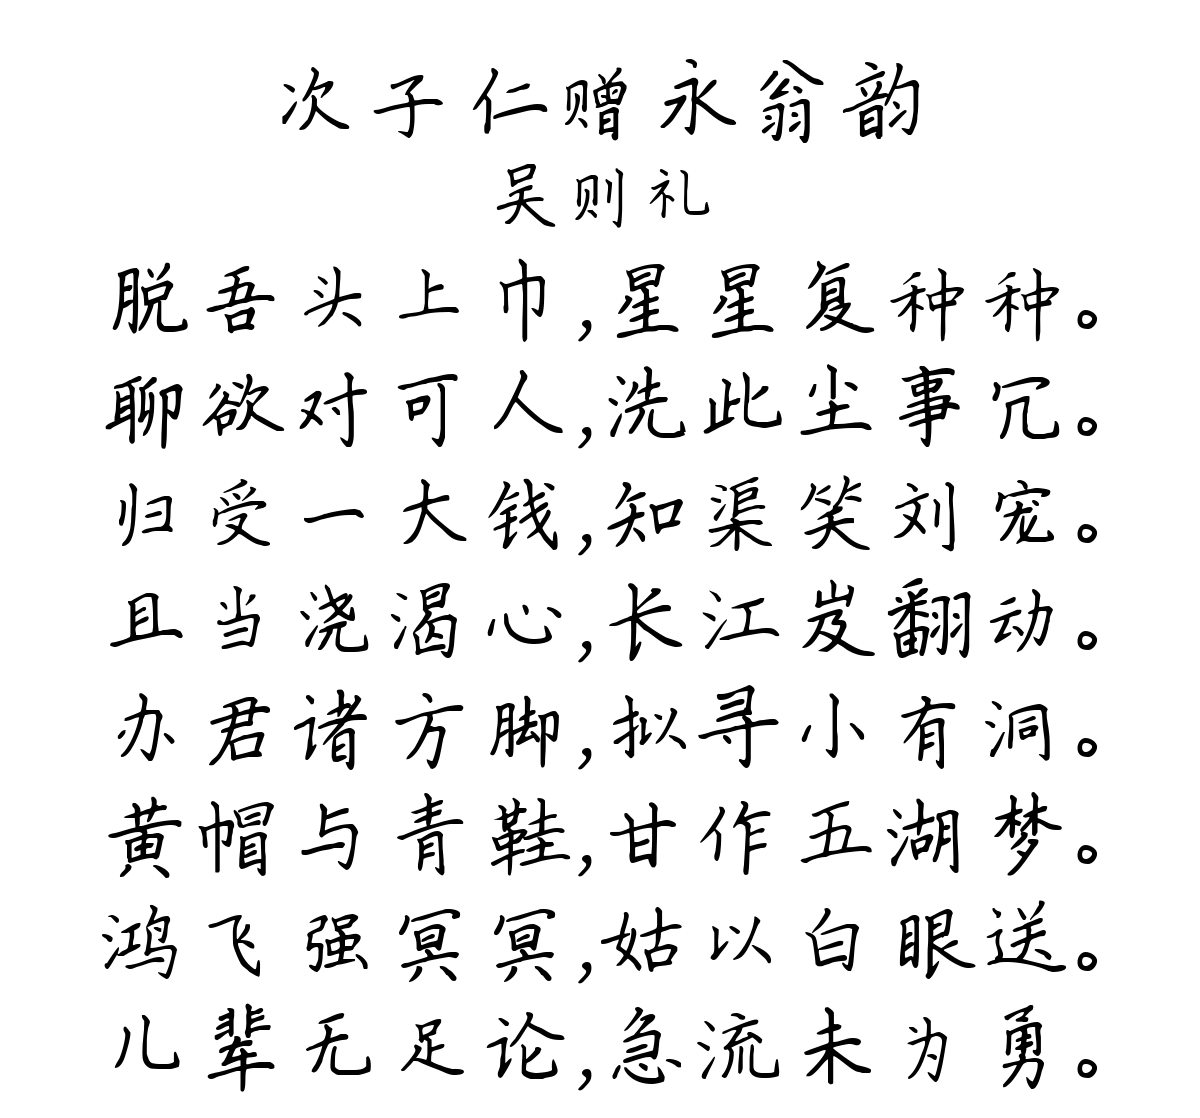 次子仁赠永翁韵
吴则礼
脱吾头上巾,星星复种种。
聊欲对可人,洗此尘事冗。
归受一大钱,知渠笑刘宠。
且当浇渴心,长江岌翻动。
办君诸方脚,拟寻小有洞。
黄帽与青鞋,甘作五湖梦。
鸿飞强冥冥,姑以白眼送。
儿辈无足论,急流未为勇。